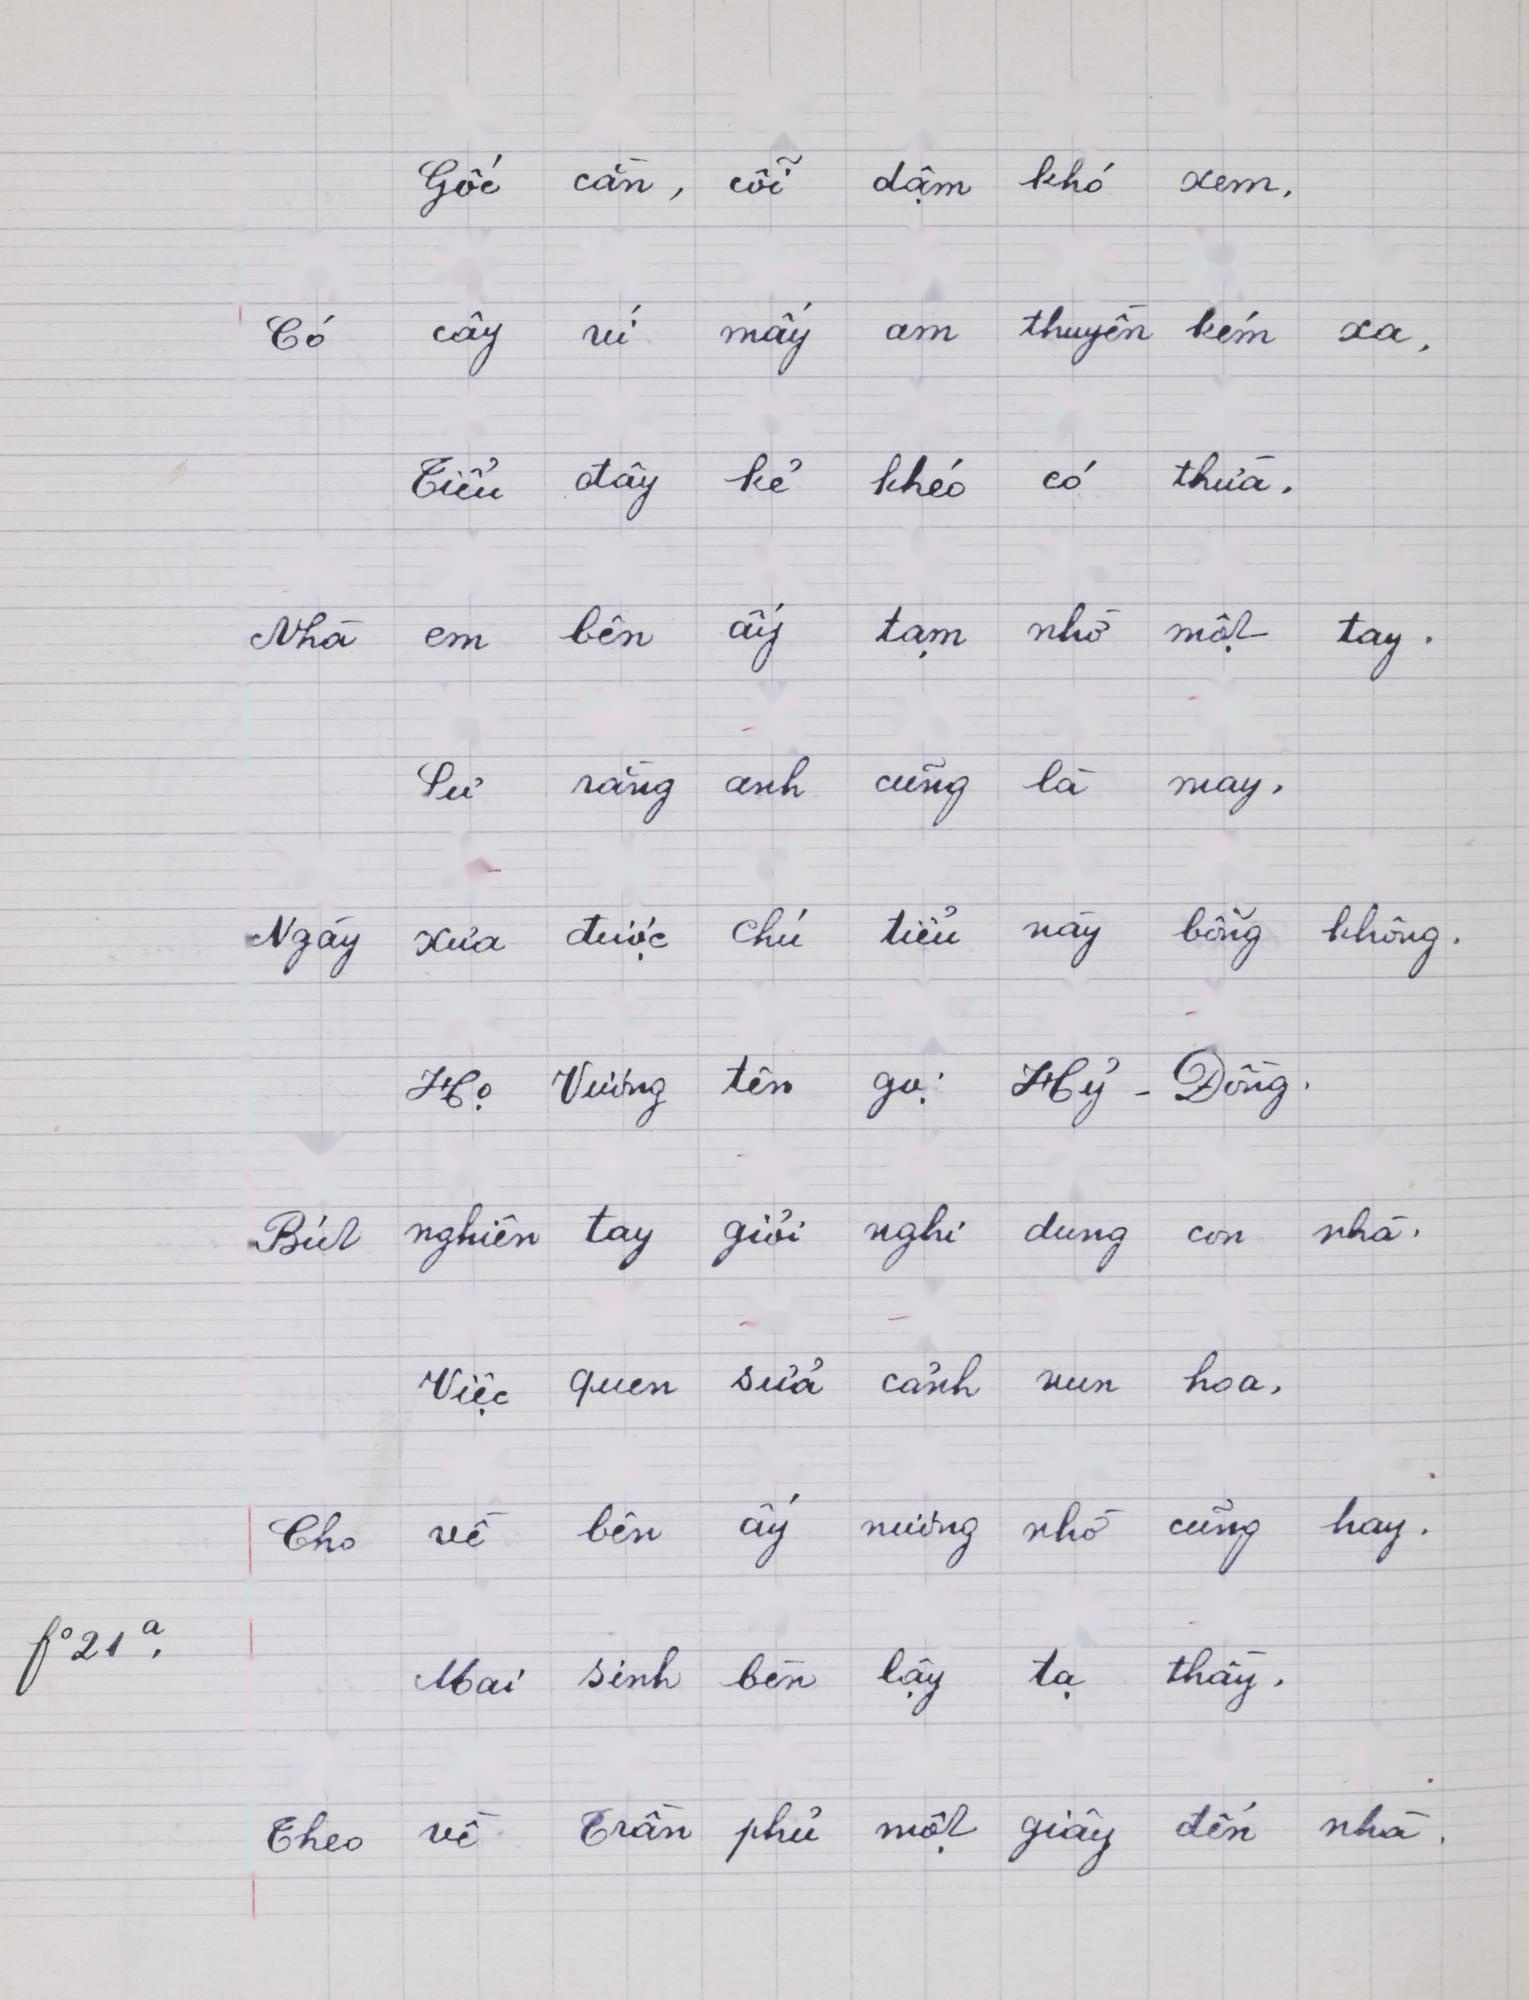 Gốc cằn, cỗi dậm khó xem,
Có cây ví mấy am thuyền kém xa,
Tiểu đây kẻ khéo có thừa.
Nhà em bên ấy tạm nhờ một tay.
Sư rằng anh cũng là may,
Ngày xưa được chú tiểu này bỗng không.
Họ Vương tên gọi Hỷ - Đồng.
Bút nghiên tay giỏi nghi dung con nhà.
Việc quen sửa cảnh vun hoa,
Cho về bên ấy nương nhờ cũng hay.
f° 21ª.
Mai sinh bèn lậy tạ thầy.
Theo về Trần phủ một giây đến nhà.